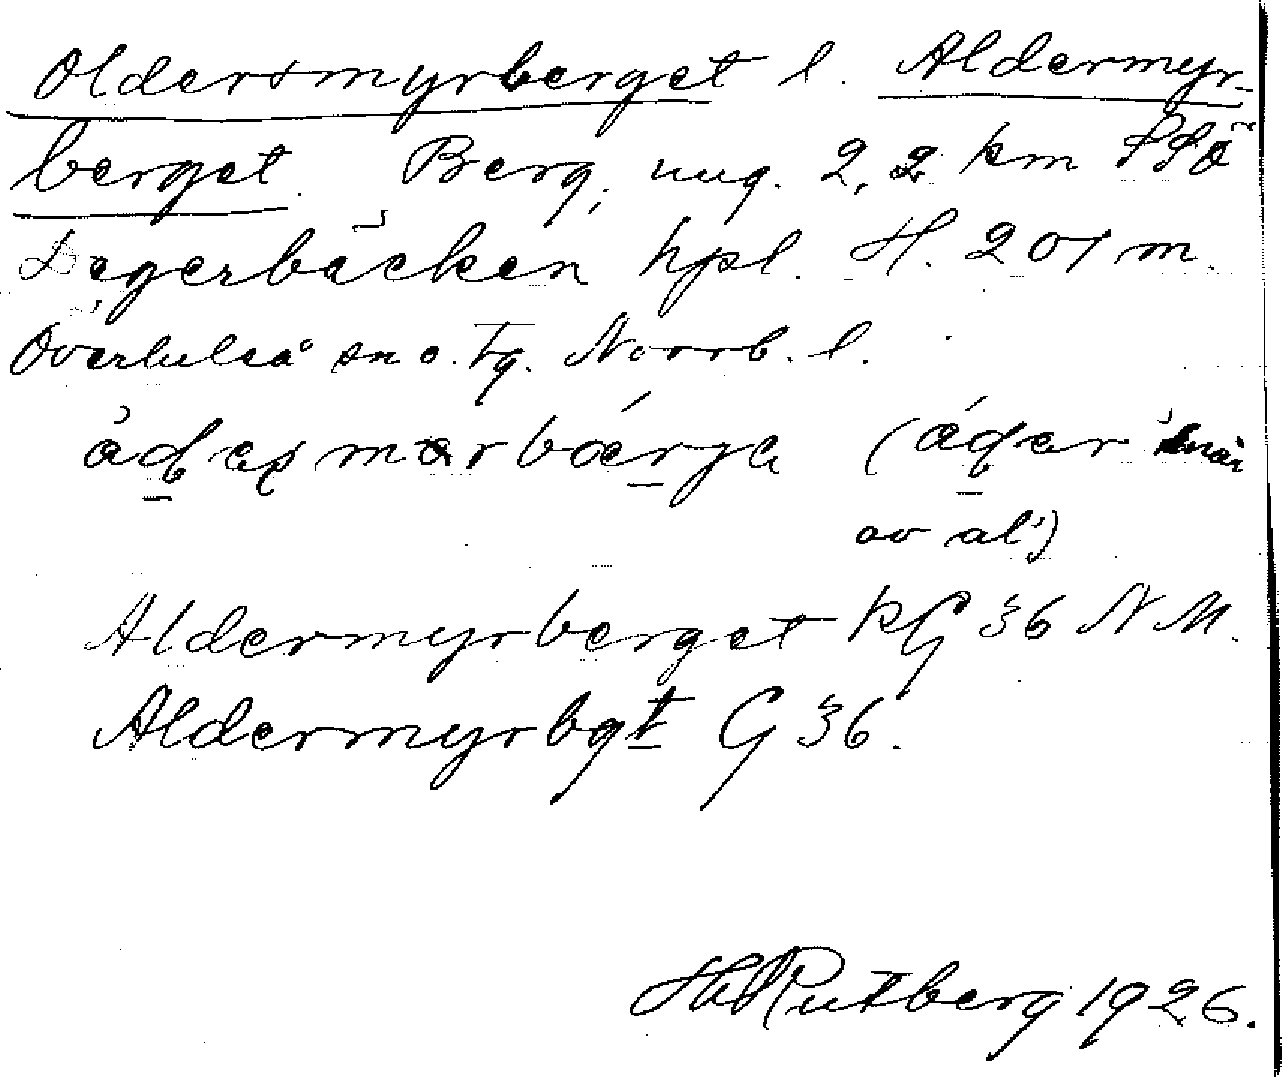 Oldersmyrberget l. Aldermyr-
berget. Berg, ung. 2,2 km SSÖ
Degerbäcken hpl. H. 201 m.
Överluleå sn o. tg. Norrb. l.
(
av al')
Aldermyrberget kG 36 N M.
Aldermyrbgt G 36.
H Rutberg 1926.